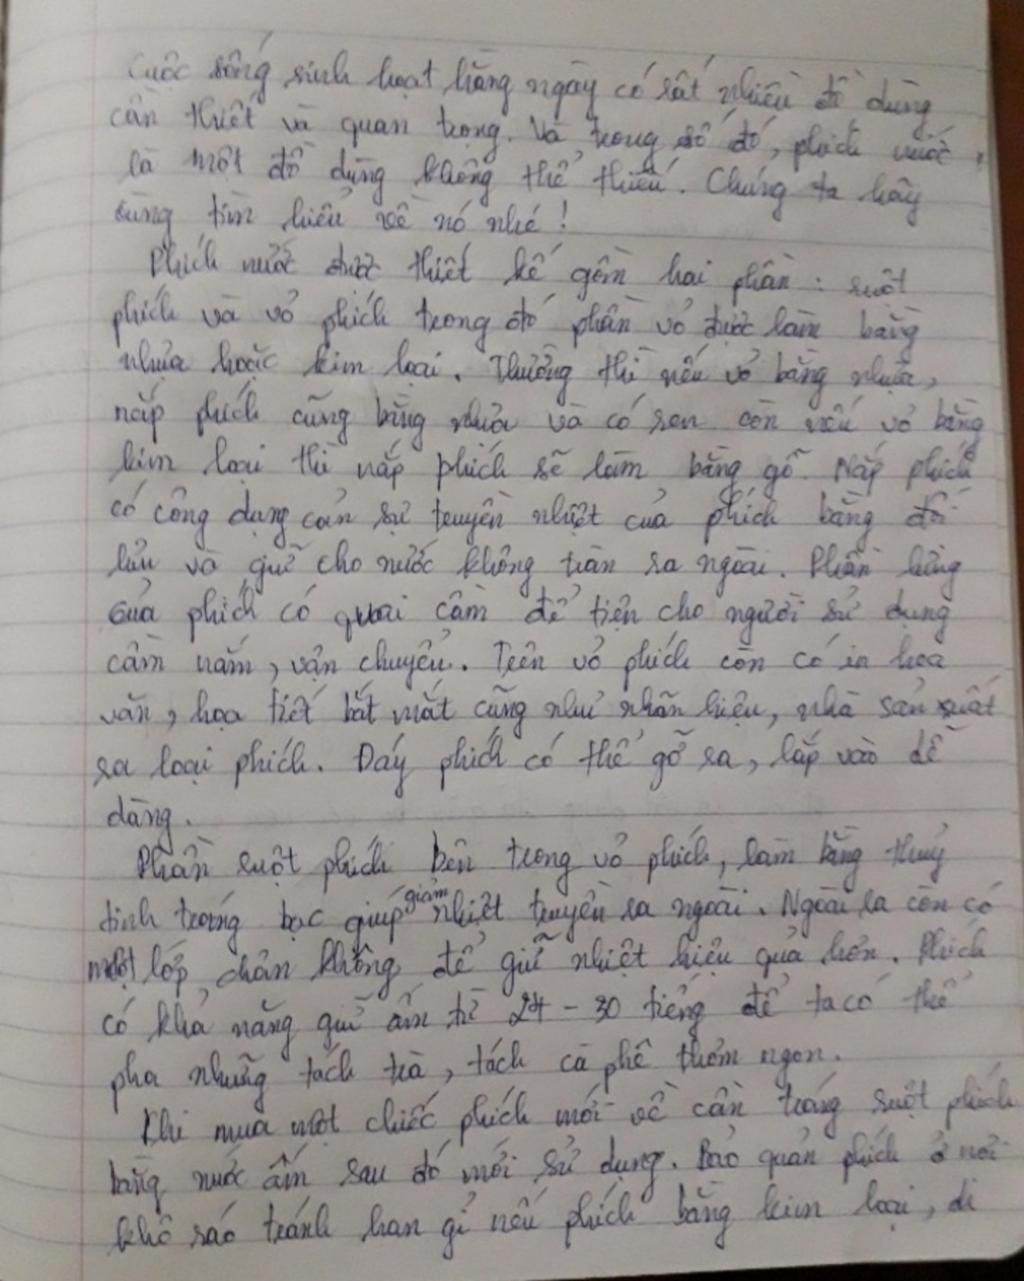 Cuộc sống sinh hoạt hằng ngày có rất nhiều đồ dùng
cần thiết và quan trọng. Và trong số đó, phích nước
là một đồ dụng không thể thiếu. Chúng ta hãy
cùng tìm hiểu về nó nhé!
Phích nước được thiết kế gồm hai phần : ruột
phích và vỏ phích trong đó phần vỏ được làm bằng
nhựa hoặc kim loại. Thường thì nếu vỏ bằng nhựa,
nắp phích cũng bằng nhựa và có ren còn nếu vỏ bằng
kim loại thì nắp phích sẽ làm bằng gỗ. Nắp phích
có công dụng cản sự truyền nhiệt của phích bằng đối
lưu và giữ cho nước không tràn ra ngoài. Phần lưng
của phích có quai cầm để tiện cho người sử dụng
cầm nắm, vận chuyển. Trên vỏ phích còn có in hoa
văn, họa tiết bắt mắt cũng như nhãn hiệu, nhà sản xuất
ra loại phích. Đáy phích có thể gỡ ra, lắp vào dễ
dàng.
Phần ruột phích bên trong vỏ phích, làm bằng thuỷ
tinh tráng bạc giúp giảm nhiệt truyền ra ngoài. Ngoài ra còn có
một lớp chân không để giữ nhiệt hiệu quả hơn. Phích
có khả năng giữ ấm từ 24 - 30 tiếng để ta có thể
pha những tách trà, tách cà phê thơm ngon.
Khi mua một chiếc phích mới về cần tráng ruột phích
bằng nước ấm sau đó mới sử dụng. Bảo quản phích ở nơi
khô ráo tránh han gỉ nếu phích bằng kim loại, di